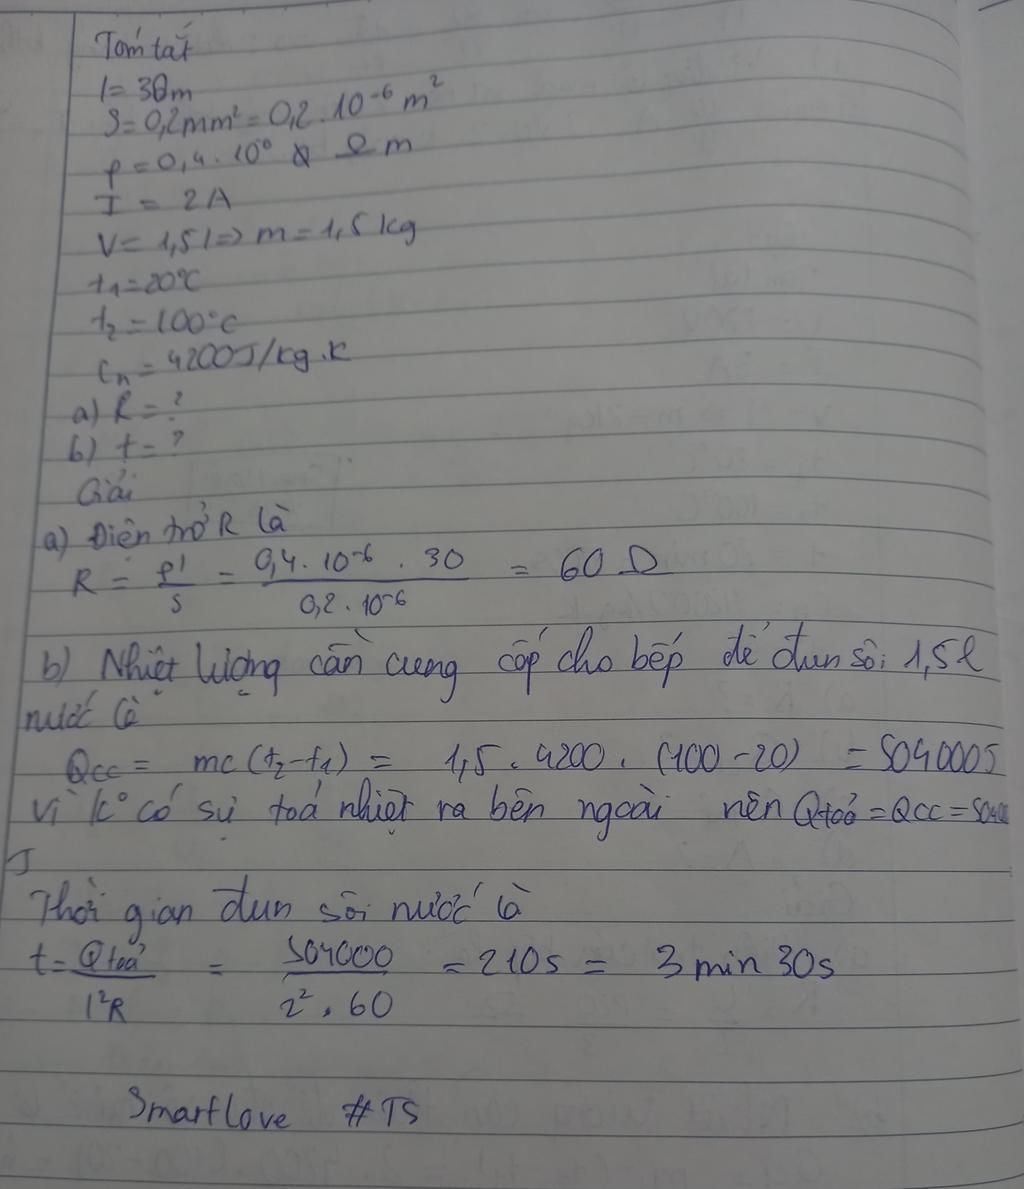 Tóm tắt
l = 30m
S = 0,2mm² = 0,2 . 10⁻⁶ m²
ρ = 0,4 . 10⁰ Ω m
I = 2A
V = 1,5 l => m = 1,5 kg
t₁ = 20°C
t₂ = 100°C
Cn = 4200J/kg.K
a) R = ?
b) t = ?
Giải
a) Điện trở R là
R = ρl/S = 0,4 . 10⁻⁶ . 30 / 0,2 . 10⁻⁶ = 60 Ω
b) Nhiệt lượng cần cung cấp cho bếp để đun sôi 1,5l
nước là
Qcc = mc (t₂ - t₁) = 1,5 . 4200 . (100 - 20) = 504000J
Vì k° có sự toả nhiệt ra bên ngoài nên Qtoả = Qcc = 504000
J
Thời gian đun sôi nước là
t = Qtoả / I²R = 504000 / 2² . 60 = 210s = 3 min 30s
Smartlove #TS